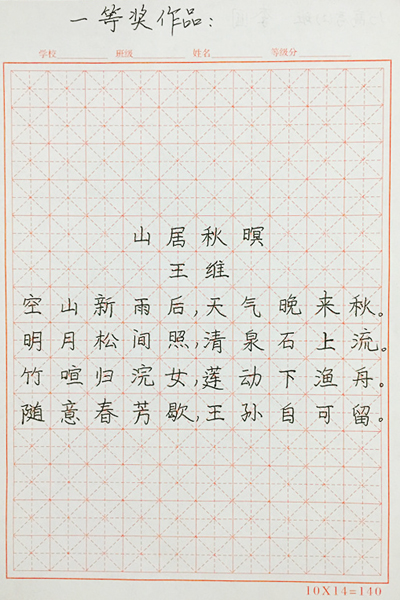 一等奖作品：
学校 班级 姓名 等级分
山居秋暝
王维
空山新雨后,天气晚来秋。
明月松间照,清泉石上流。
竹喧归浣女,莲动下渔舟。
随意春芳歇,王孙自可留。
10X14=140